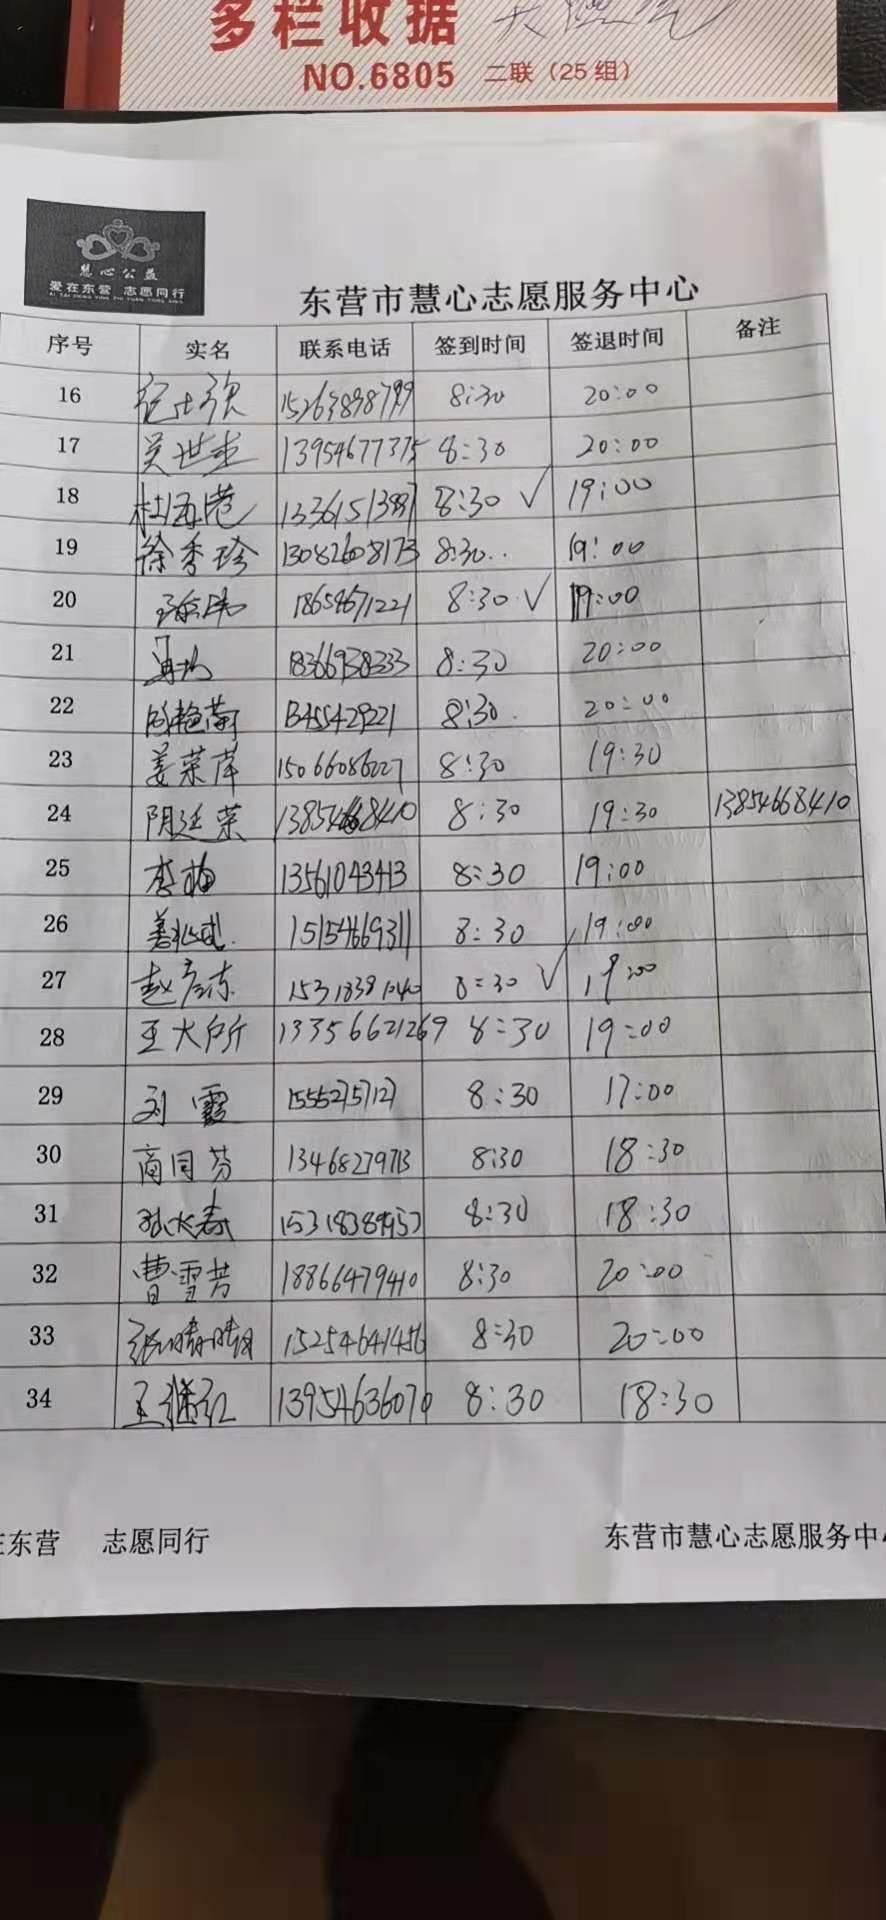 多栏收据
NO.6805 二联（25组）
慧心公益
爱在东营 志愿同行
东营市慧心志愿服务中心
序号 实名 联系电话 签到时间 签退时间 备注
16 8:30 20:00
17 吴世 13954677375 8:30 20:00
18 杜海港 8:30 √ 19:00
19 徐秀珍 13082608173 8:30 19:00
20 18654671221 8:30 √ 19:00
21 18366938333 8:30 20:00
22 13455429221 8:30 20:00
23 姜荣萍 15066086227 8:30 19:30
24 阴廷荣 13854668410 8:30 19:30 13854668410
25 李梅 13561043413 8:30 19:00
26 15154669311 8:30 19:00
27 赵彦东 15318381040 8:30 √ 19:00
28 王大所 13356621269 8:30 19:00
29 刘霞 15552757127 8:30 17:00
30 商同芬 13468279713 8:30 18:30
31 孙大春 8:30 18:30
32 曹雪芳 18866479410 8:30 20:00
33 张晴晴 15254641456 8:30 20:00
34 王继红 13954636070 8:30 18:30
东营 志愿同行
东营市慧心志愿服务中